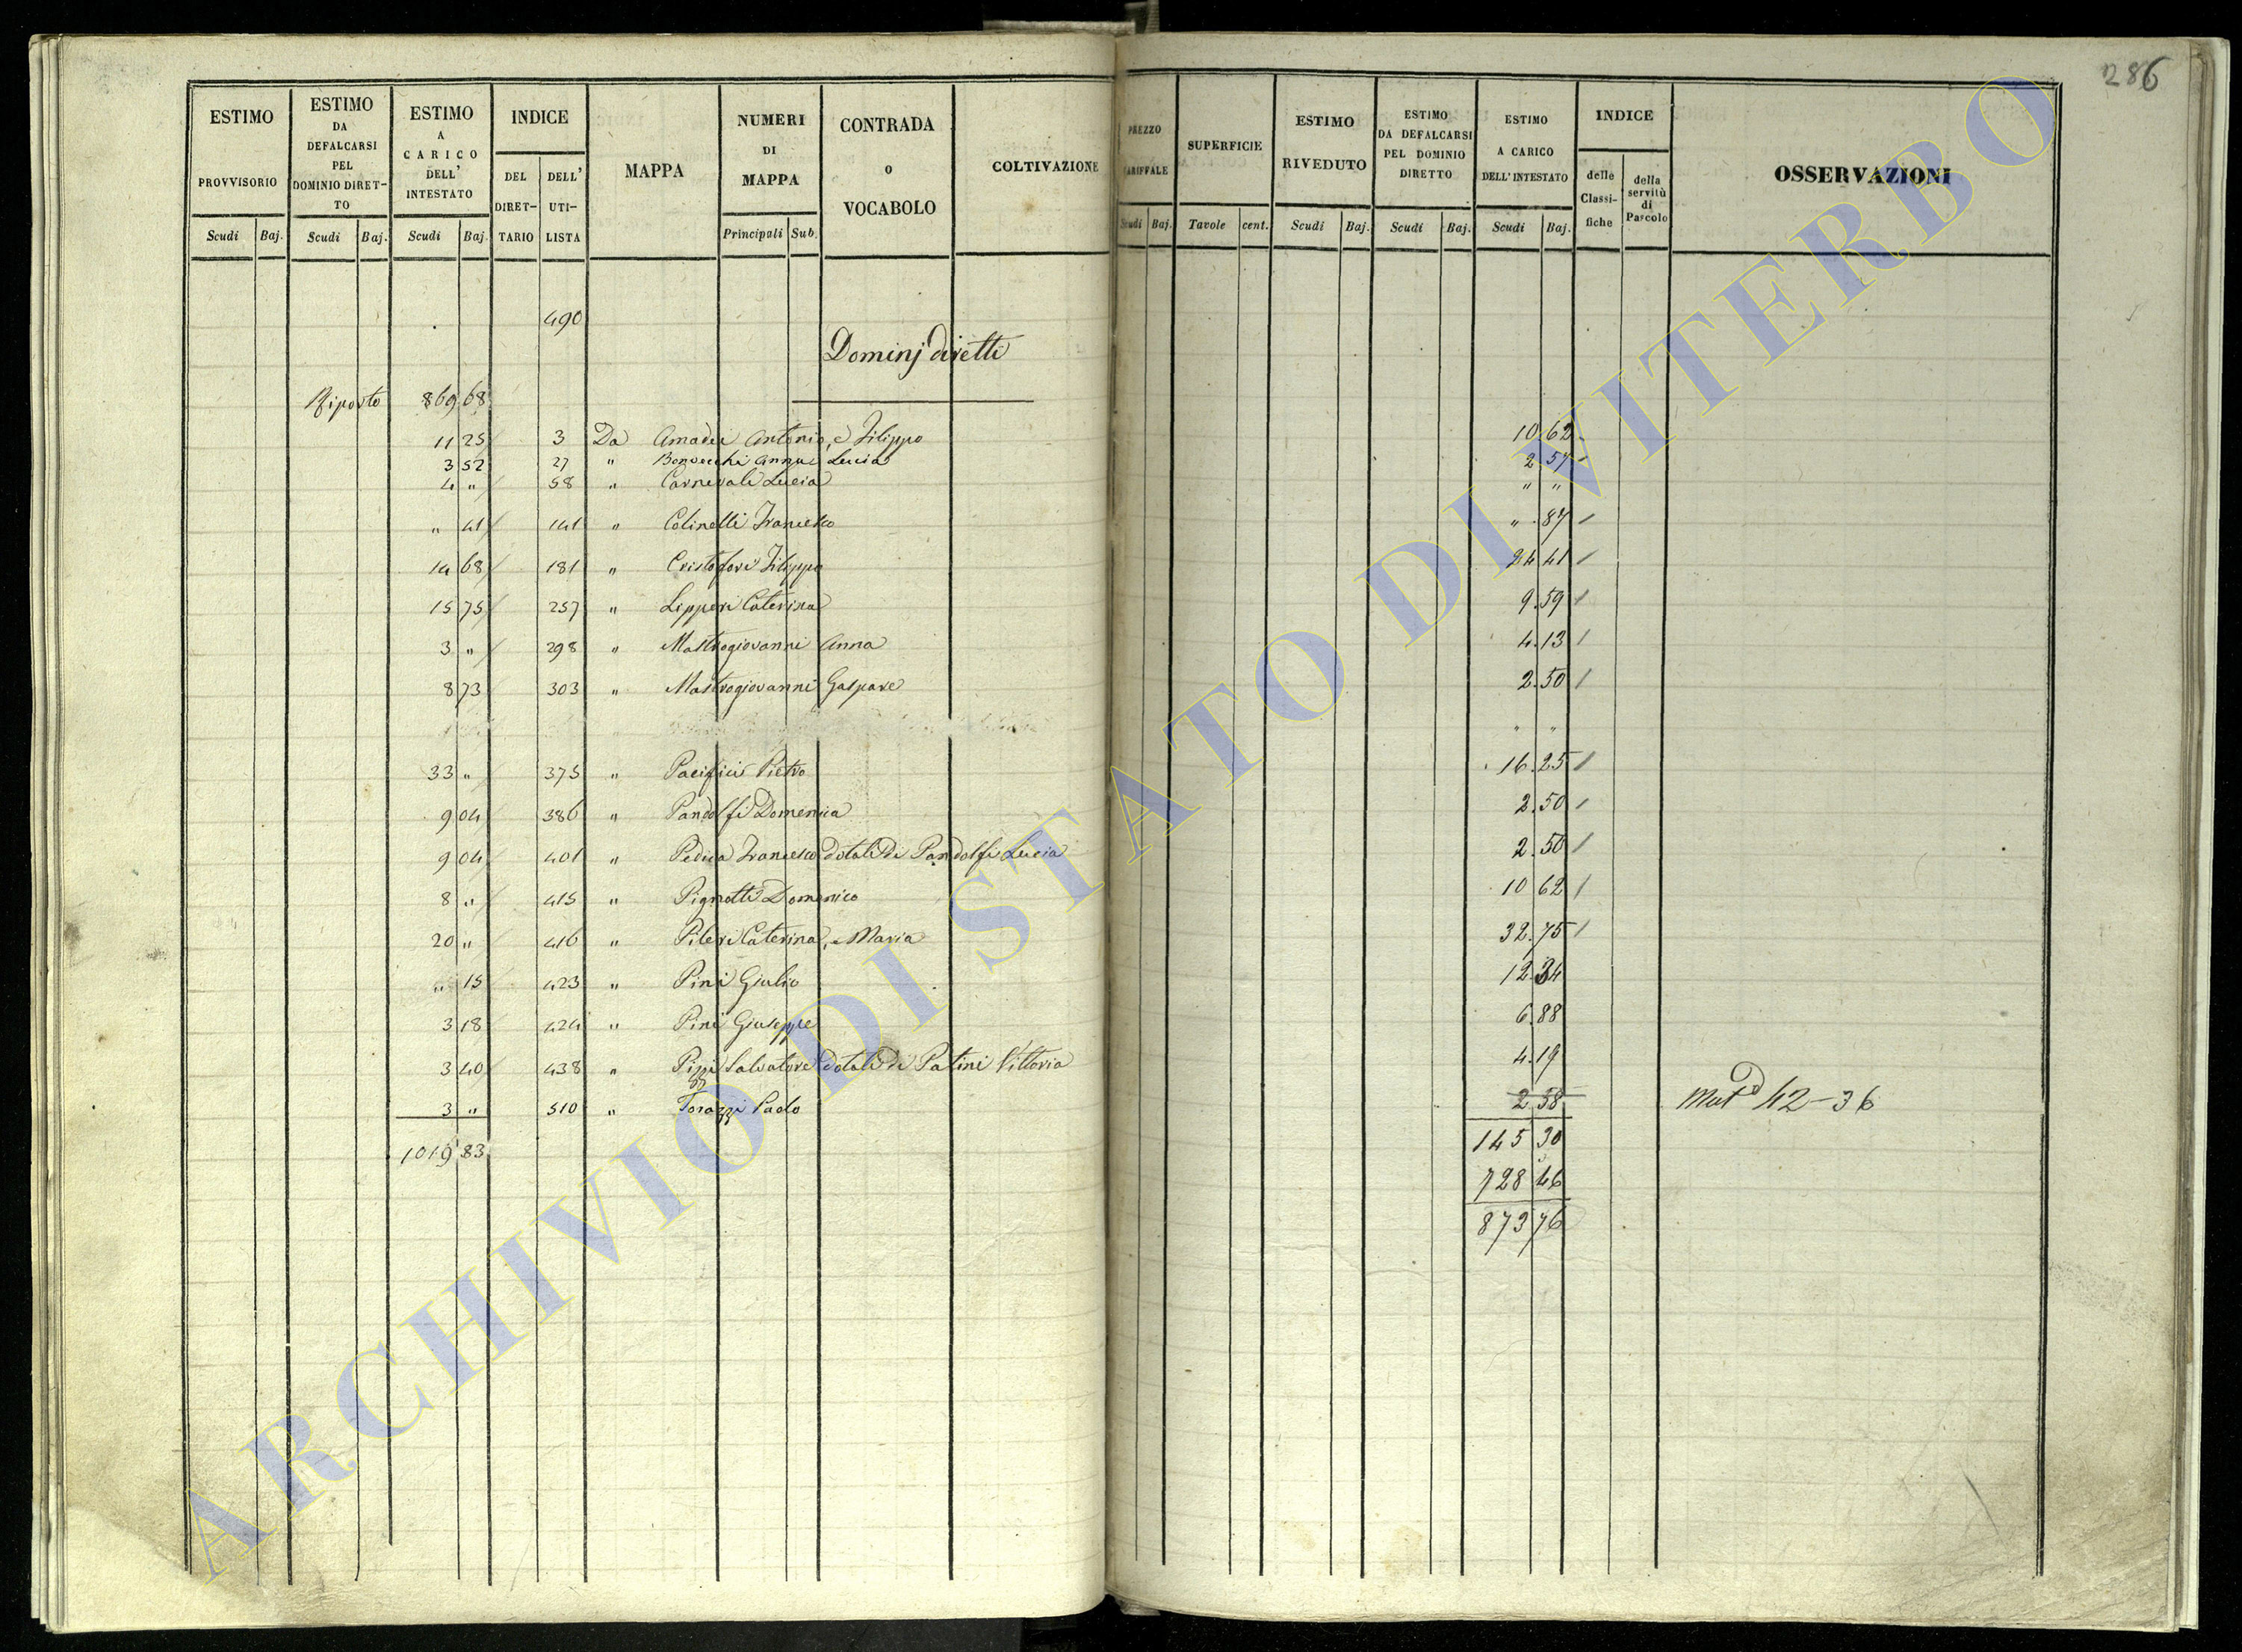 286
ESTIMO PROVVISORIO
ESTIMO DA DEFALCARSI PEL DOMINIO DIRET- TO
ESTIMO A CARICO DELL' INTESTATO
INDICE
DEL DIRET- TARIO
DELL' UTI- LISTA
MAPPA
NUMERI DI MAPPA
CONTRADA O VOCABOLO
COLTIVAZIONE
PREZZO TARIFFALE
SUPERFICIE
ESTIMO RIVEDUTO
ESTIMO DA DEFALCARSI PEL DOMINIO DIRETTO
ESTIMO A CARICO DELL' INTESTATO
INDICE
delle Classi- fiche
della servitù di Pascolo
OSSERVAZIONI
Scudi Baj. Scudi Baj. Scudi Baj. Principali Sub. Scudi Baj. Tavole cent. Scudi Baj. Scudi Baj. Scudi Baj.
490
Dominj diretti
Riporto 869 68
11 25 3 Da Amadei Antonio, e Filippo 10 62
3 52 27 " Bonvecchi Anna, Lucia 2 57
4 " 58 " Carnevali Lucia " "
" 41 141 " Colinelli Francesco " 87
14 68 181 " Cristofori Filippo 24 41
15 75 257 " Lipperi Caterina 9 59
3 " 298 " Mastrogiovanni Anna 4 13
8 73 303 " Mastrogiovanni Gaspare 2 50
" "
33 " 375 " Pacifici Pietro 16 25
9 04 386 " Pandolfi Domenica 2 50
9 04 401 " Pedica Francesco dotali di Pandolfi Lucia 2 50
8 " 415 " Pignotti Domenico 10 62
20 " 416 " Pileri Caterina, e Maria 32 75
" 15 423 " Pini Giulio 12 34
3 18 424 " Pini Giuseppe 6 88
3 40 438 " Pippi Salvatore dotali di Patini Vittoria 4 19
3 " 510 " Torazzi Paolo 2 58 Mut 42-36
1019 83
145 30
728 46
873 76
ARCHIVIO DI STATO DI VITERBO